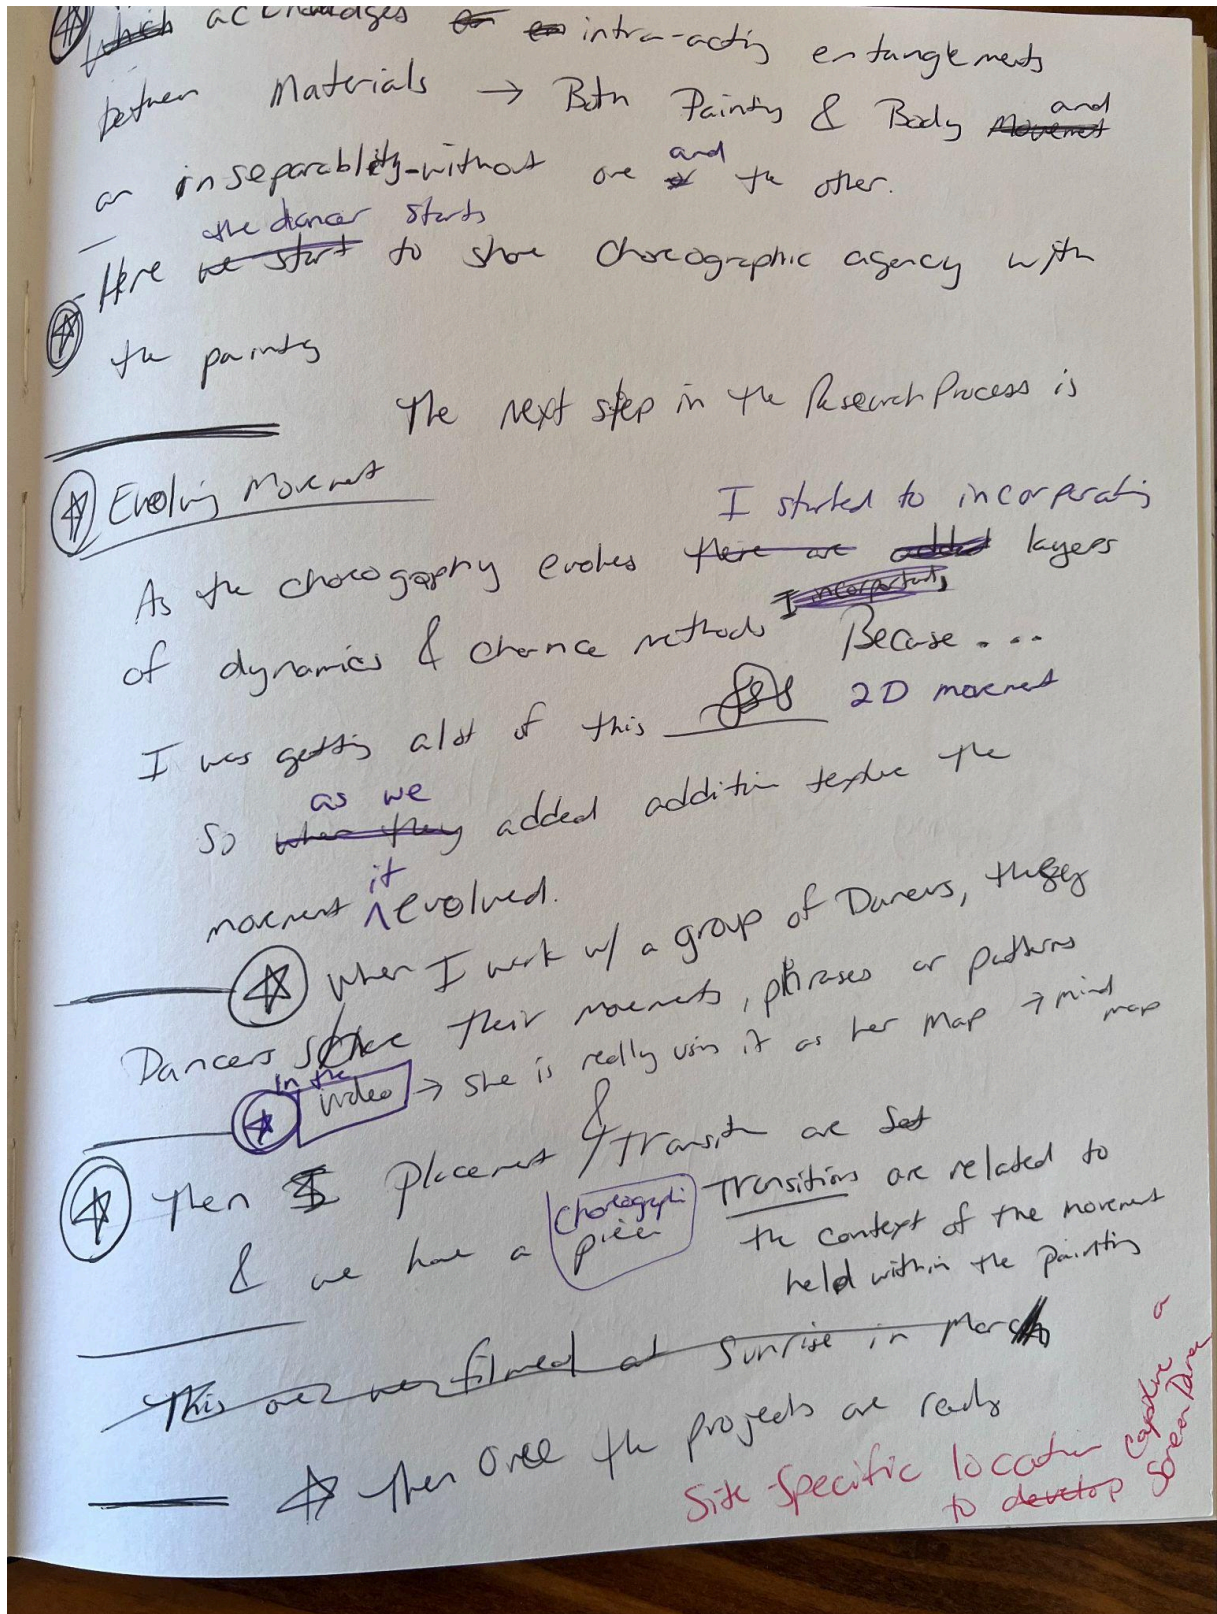 which acknowledges intra-acting entanglements
between Materials → Both Painting & Body Movement and
an inseparability-without one and the other.
the dancer starts
Here we start to share choreographic agency with
the painting
The next step in the Research Process is
Evolving Movement
I started to incorporating
As the choreography evolves there are added layers
I incorporating
of dynamics & chance methods Because ....
I was getting alot of this 2D movement
as we
So when they added addition texture the
it
movement ^ evolved.
When I work w/ a group of Dancers, they
Dancers share their movements, phrases or patterns
in the
video → she is really using it as her map → mind map
&
Then Placement / Transition are set
& we have a Choreographic piece
Transitions are related to
the context of the movement
held within the painting
This one was filmed at Sunrise in March
Then Once the projects are ready
Site-Specific location
to develop Capture a
Screen Dance